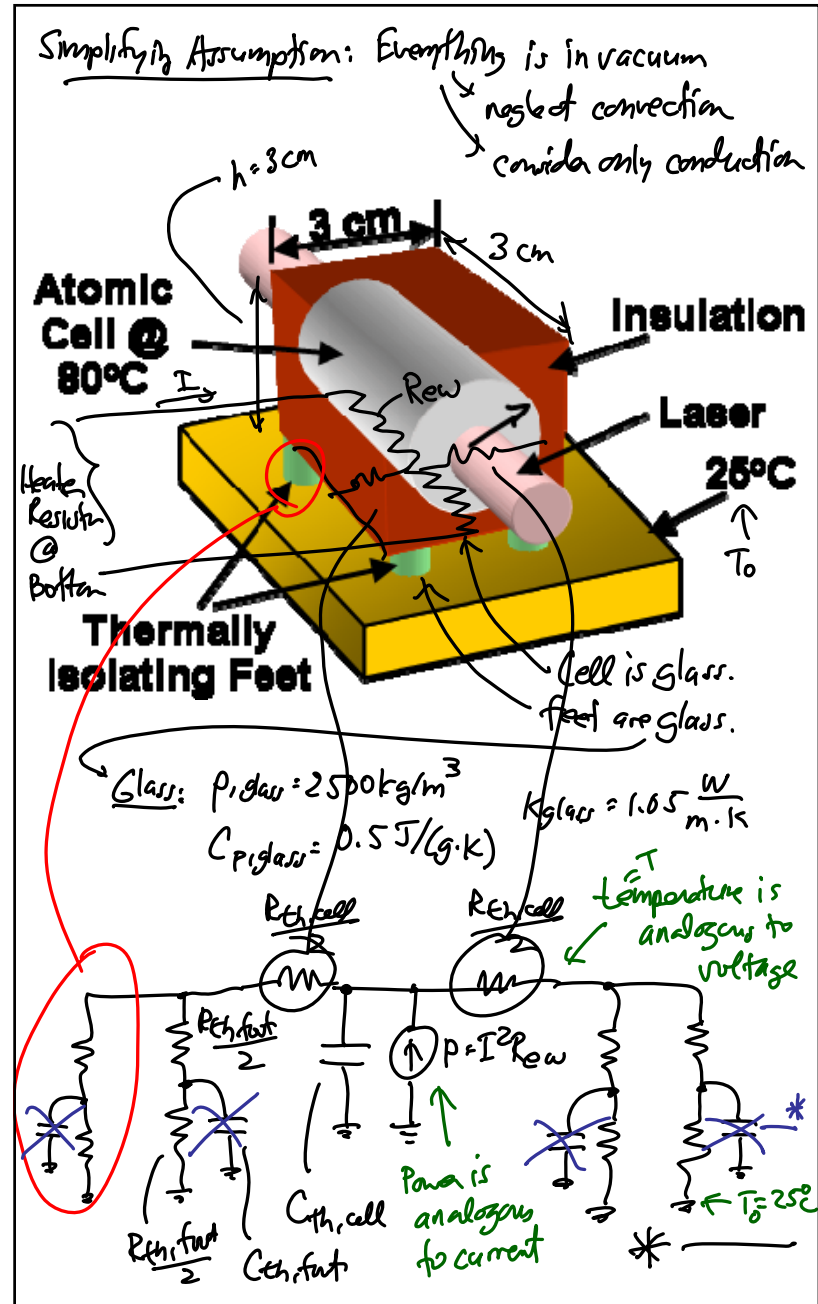 Simplifying Assumption: Everything is in vacuum
neglect convection
consider only conduction
h = 3 cm
3 cm
3 cm
Atomic
Cell @
80°C
Insulation
I
Rew
Laser
25°C
T₀
Heater
Resistor
@
Bottom
Thermally
Isolating Feet
Cell is glass.
feet are glass.
Glass: ρ,glass = 2500 kg/m³
Kglass = 1.05 W/m·K
Cp,glass = 0.5 J/(g·K)
Rth,cell/2
Rth,cell/2
=T
temperature is
analogous to
voltage
Rth,foot/2
P = I²Rew
*
Rth,foot/2
Cth,foot
Cth,cell
Power is
analogous
to current
T₀ = 25°C
*